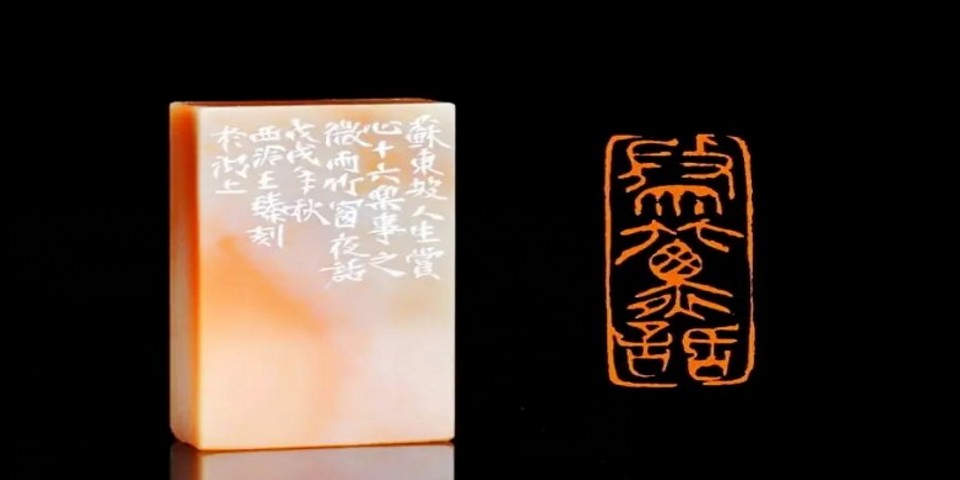 蘇東坡人生賞
心十六樂事之
微雨竹窗夜話
戊戌年秋
西泠王臻刻
於湖上
微雨竹窗夜話